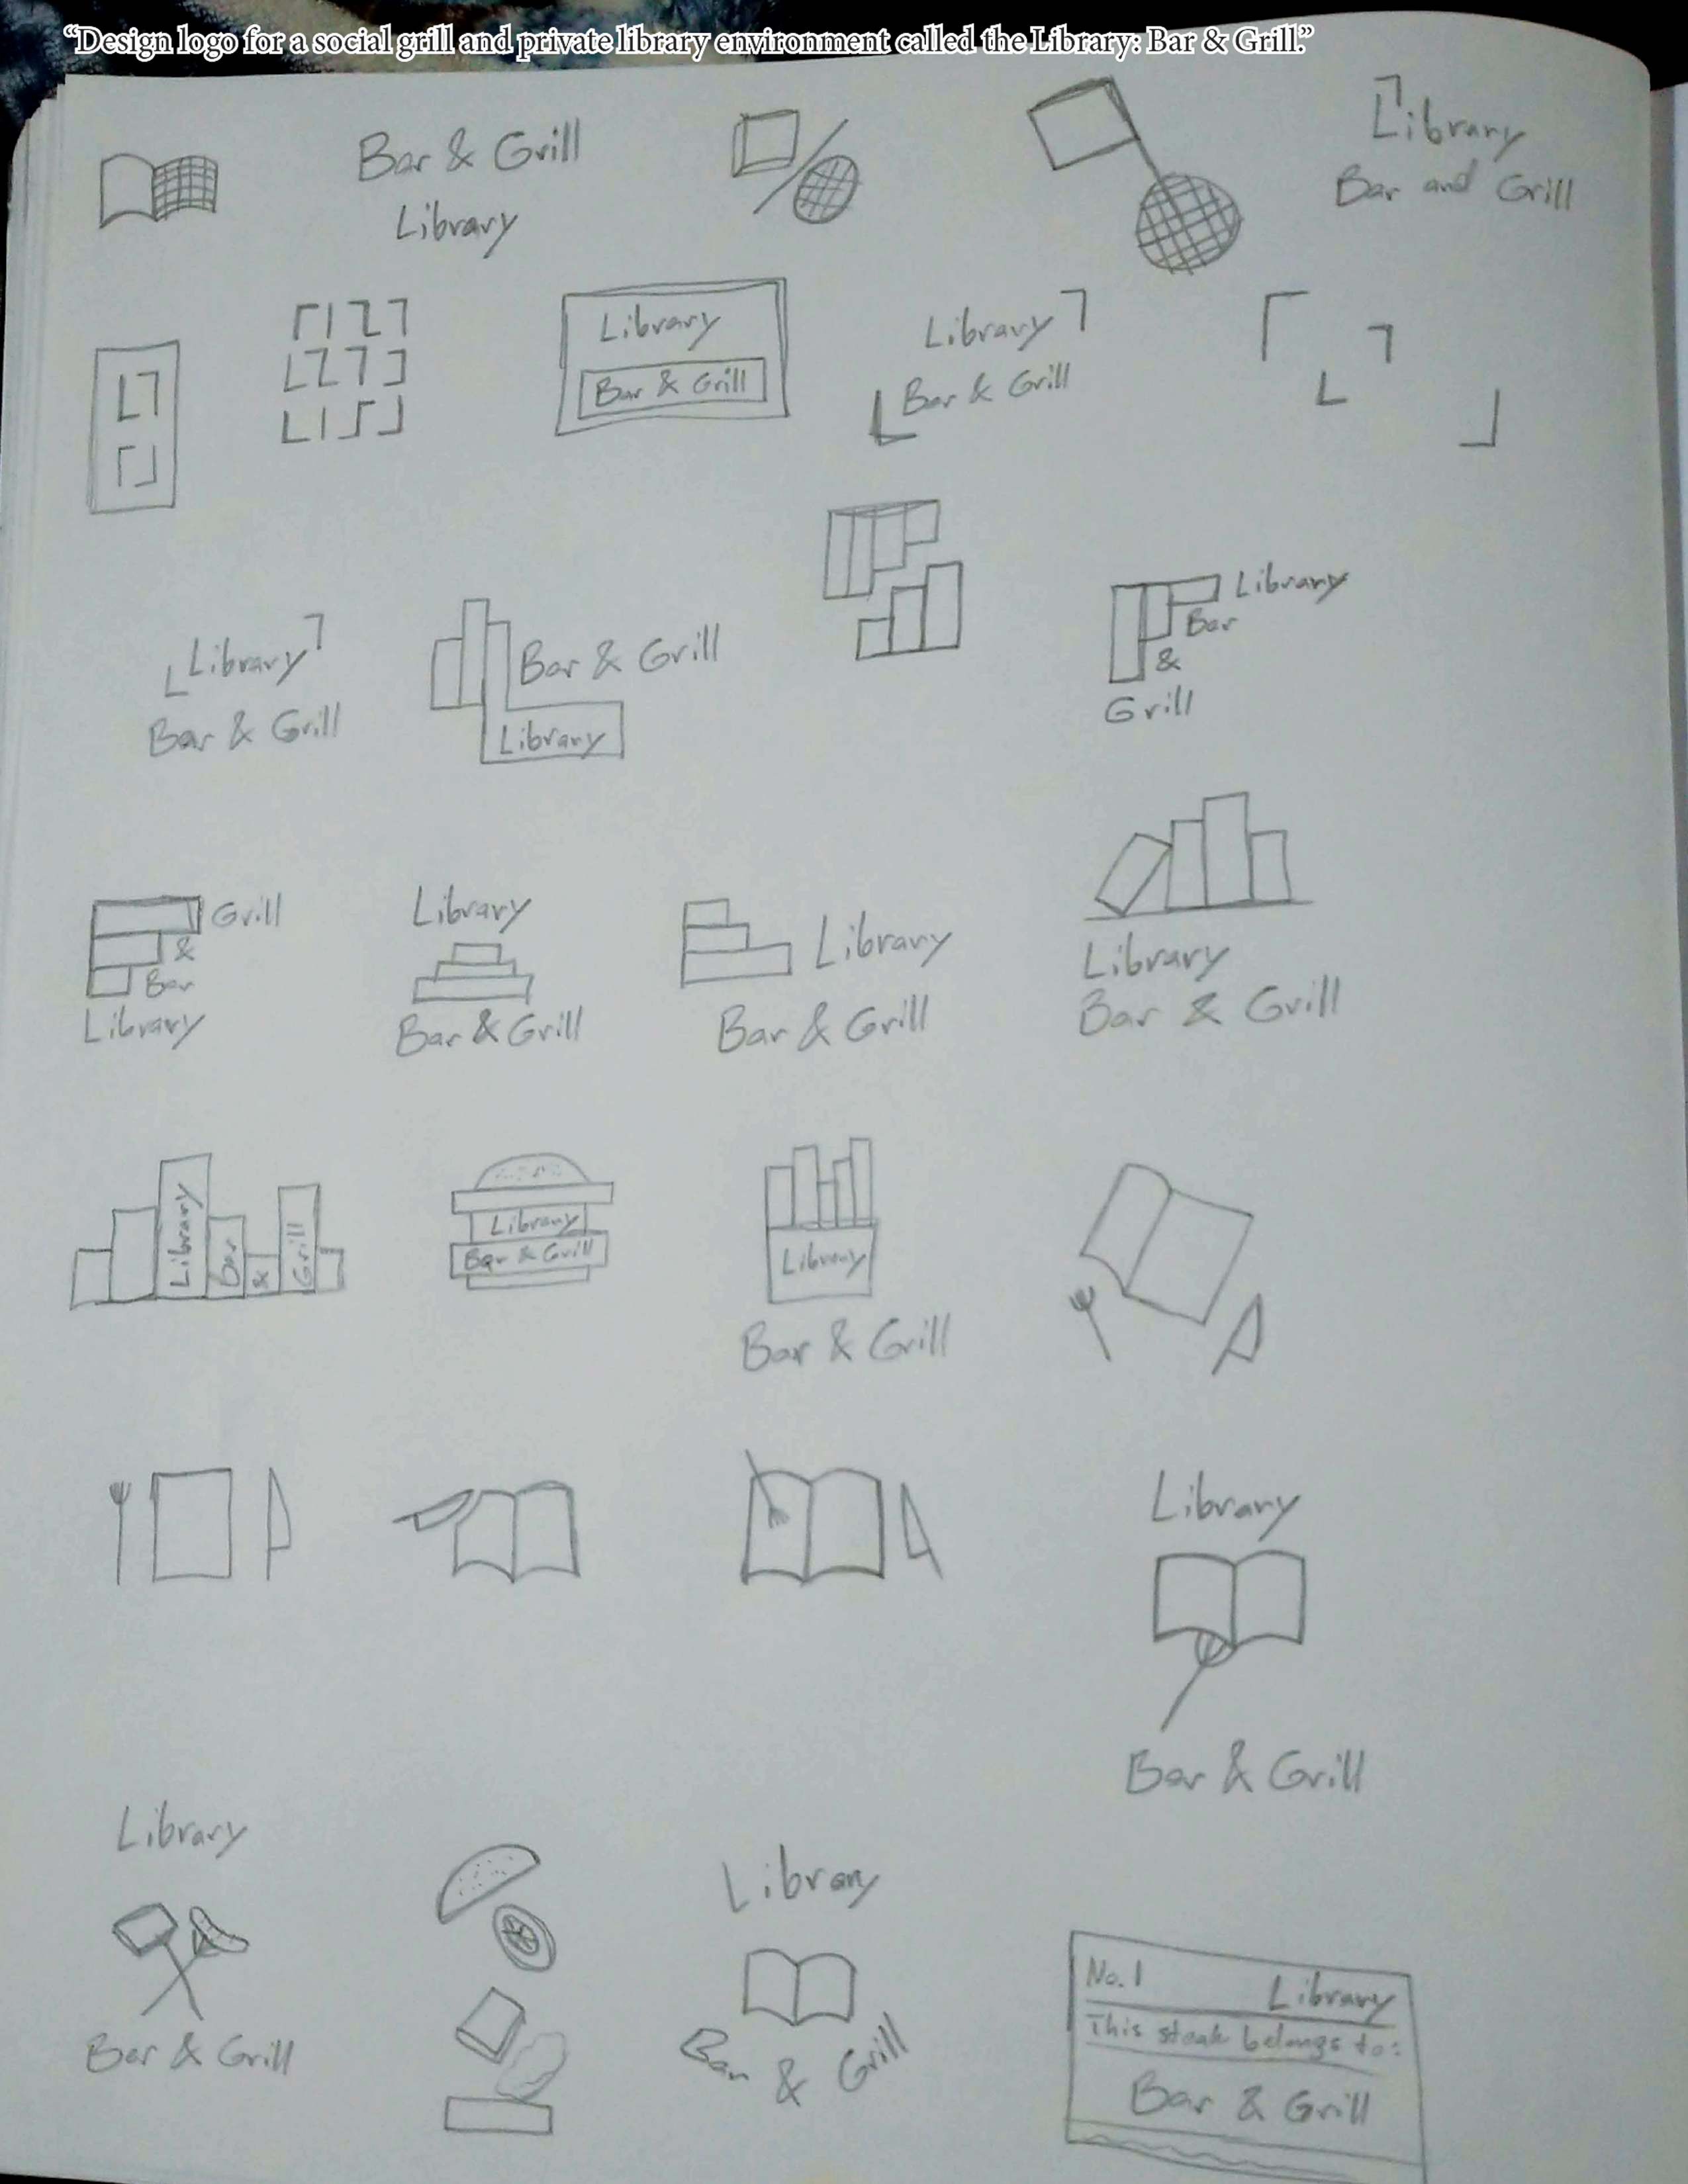 “Design logo for a social grill and private library environment called the Library: Bar & Grill.”
Bar & Grill
Library
Library
Bar and Grill
Library
Bar & Grill
Library
Bar & Grill
Library
Bar & Grill
Bar & Grill
Library
Library
Bar
&
Grill
Grill
&
Bar
Library
Library
Bar & Grill
Library
Bar & Grill
Library
Bar & Grill
Library
Bar
&
Grill
Library
Bar & Grill
Library
Bar & Grill
Library
Bar & Grill
Library
Bar & Grill
Library
Bar & Grill
No. 1 Library
This steak belongs to:
Bar & Grill